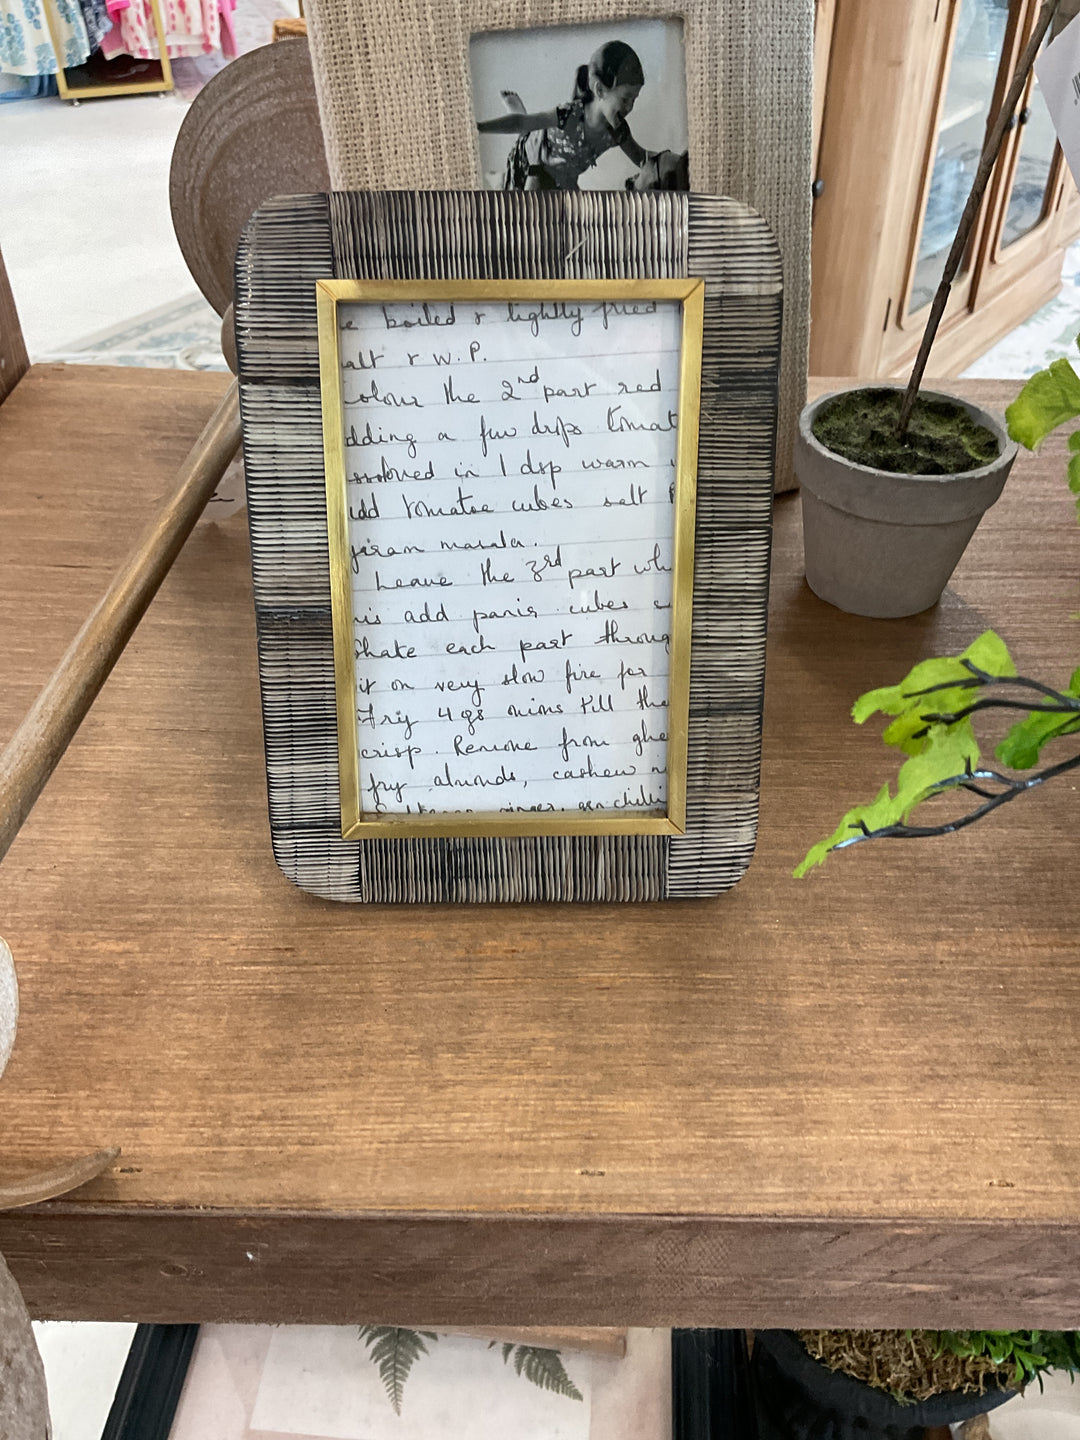 e boiled & lightly fried
alt & W.P.
olour the 2nd part red
dding a few drps tomat
ssolved in 1 dsp warm
add tomatoe cubes salt P
jiram masala.
Leave the 3rd part whi
is add panir cubes
Shake each part throug
it on very slow fire for
Fry 4 gs onions till the
crisp. Remove from ghe
fry almonds, cashew n
ginger, grn chilli